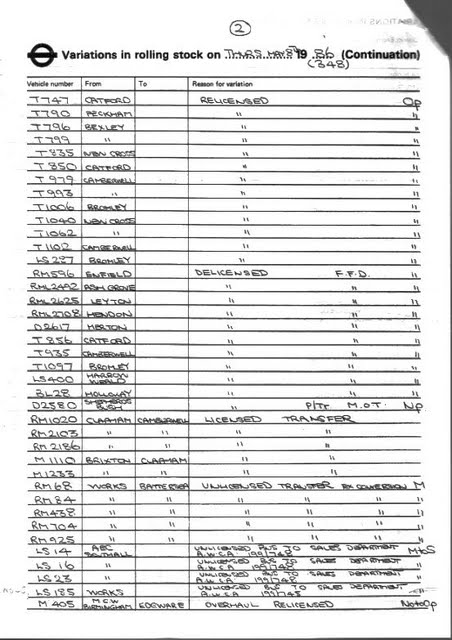 ②
Variations in rolling stock on THURS. MAY 8TH 19 86 (Continuation)
(348)
Vehicle number From To Reason for variation
T747 CATFORD RELICENSED Op
T790 PECKHAM " "
T796 BEXLEY " "
T799 " " "
T835 NEW CROSS " "
T850 CATFORD " "
T979 CAMBERWELL " "
T993 " " "
T1006 BROMLEY " "
T1040 NEW CROSS " "
T1062 " " "
T1102 CAMBERWELL " "
LS227 BROMLEY " "
RM596 ENFIELD DELICENSED F.F.D. "
RML2492 ASH GROVE " " "
RML2625 LEYTON " " "
RML2708 HENDON " " "
D2617 MERTON " " "
T856 CATFORD " " "
T935 CAMBERWELL " " "
T1097 BROMLEY " " "
LS400 HARROW WEALD " " "
BL28 HOLLOWAY " " "
D2580 SHEPHERDS BUSH " P/Tr M.O.T. Np
RM1020 CLAPHAM CAMBERWELL LICENSED TRANSFER
RM2103 " " " "
RM2186 " " " "
M1110 BRIXTON CLAPHAM " "
M1233 " " " "
RM68 WORKS BATTERSEA UNLICENSED TRANSFER EX CONVERSION M
RM84 " " " " " "
RM438 " " " " " "
RM704 " " " " " "
RM925 " " " " " "
LS14 AEC SOUTHALL UNLICENSED BUS TO SALES DEPARTMENT A.W.C.A 1991/748 M to S
LS16 " UNLICENSED BUS TO SALES DEPARTMENT A.W.C.A 1991/748 "
LS23 " UNLICENSED BUS TO SALES DEPARTMENT A.W.C.A 1991/748 "
LS185 WORKS UNLICENSED BUS TO SALES DEPARTMENT A.W.C.A "
M405 M.C.W BIRMINGHAM EDGWARE OVERHAUL RELICENSED No to Op